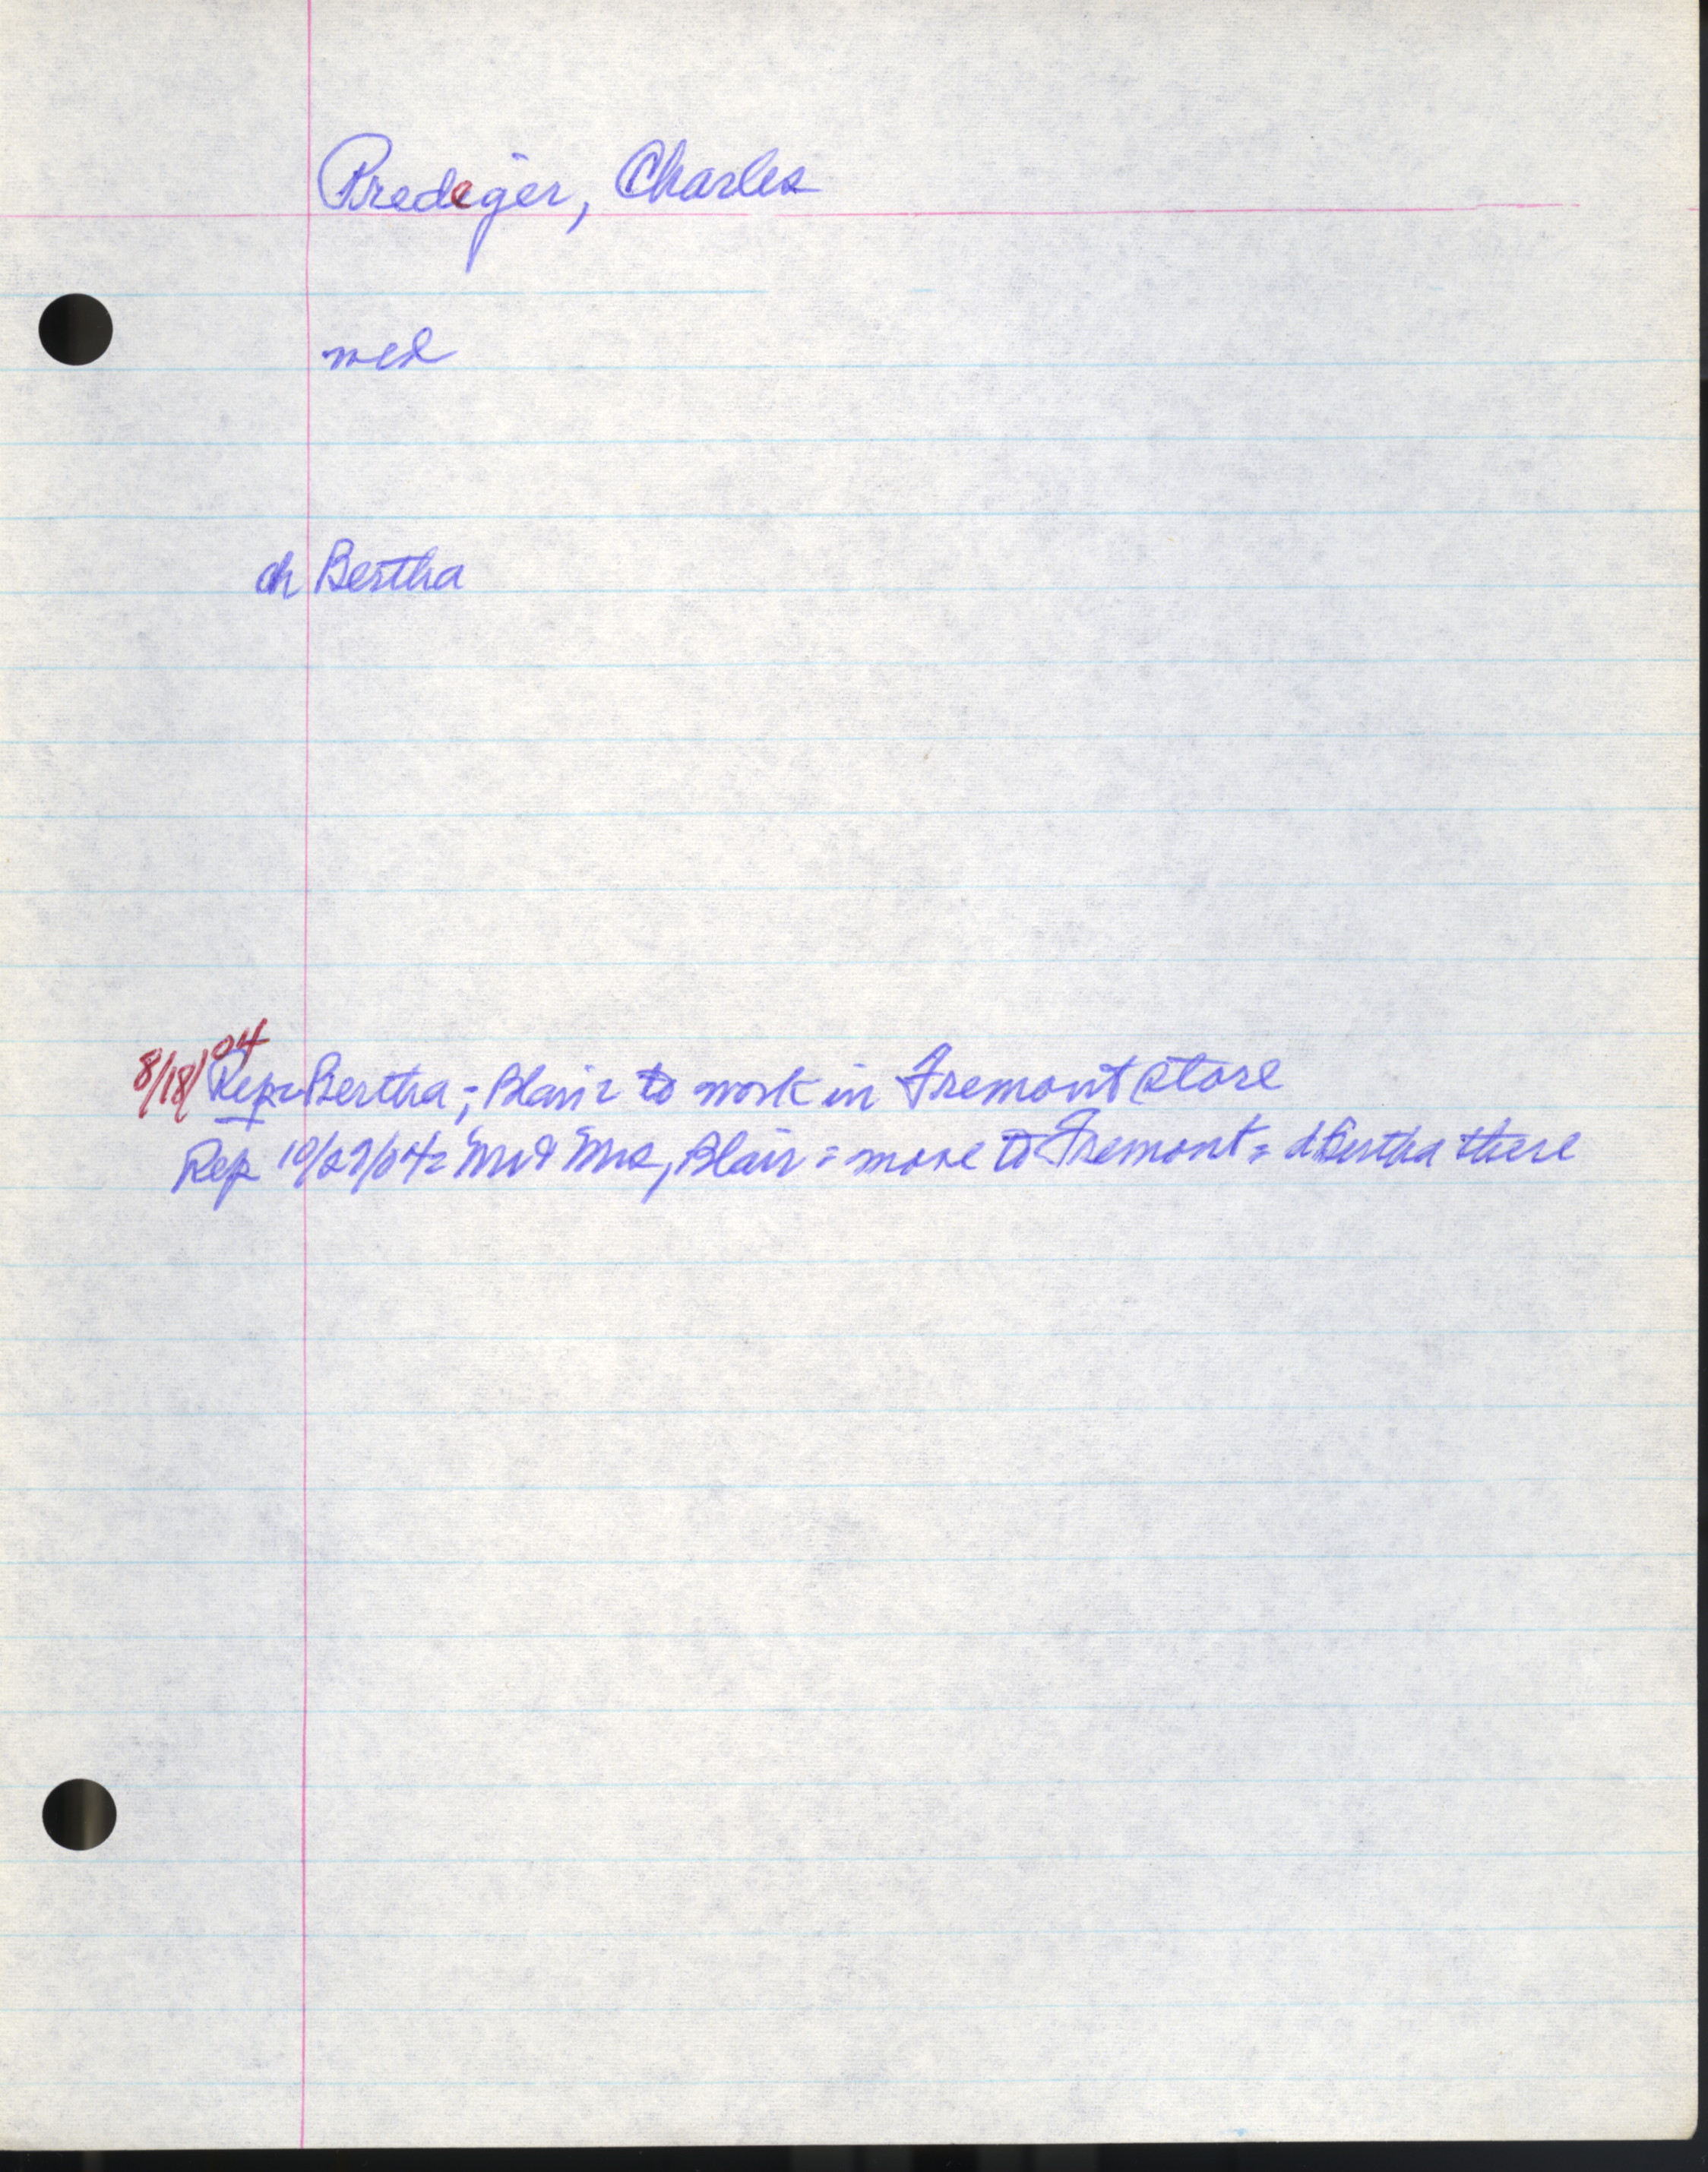 Predeger, Charles
wed
ch Bertha
8/18/04
Rep = Bertha; Blair = to work in Fremont store
Rep 10/27/04 = Mr & Mrs, Blair = move to Fremont = d Bertha there